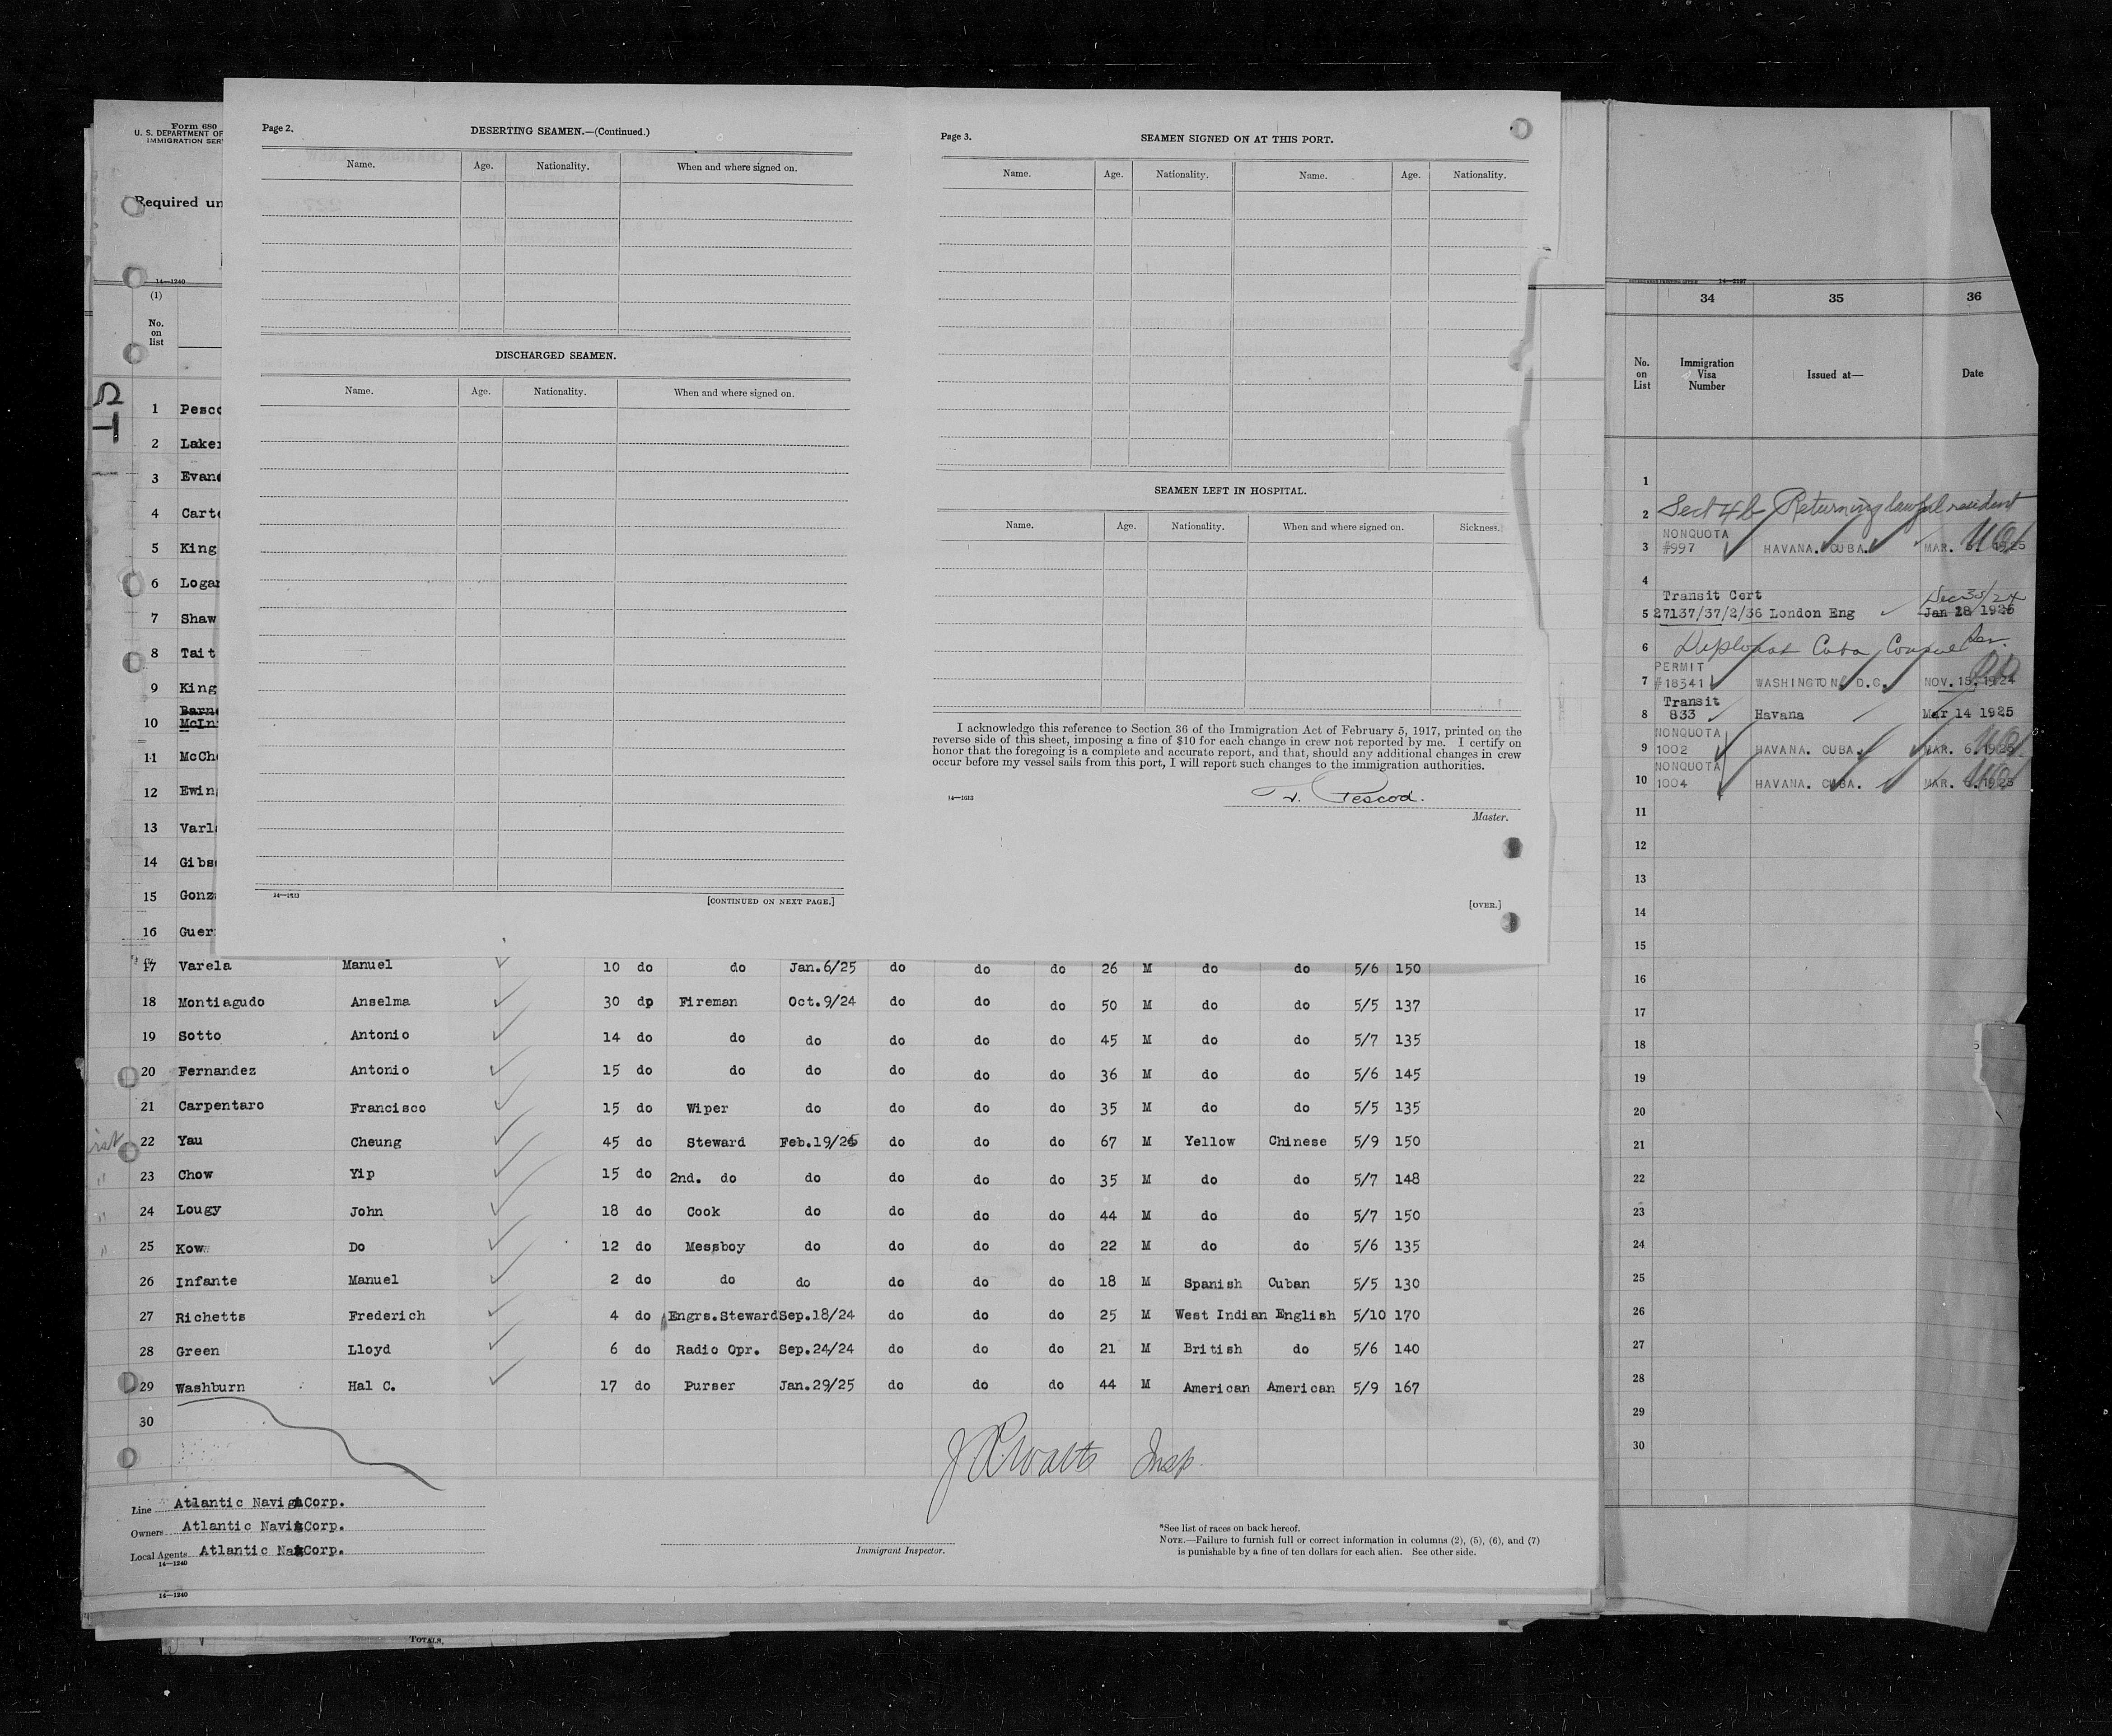 Form 680
U. S. DEPARTMENT OF
IMMIGRATION SER
Required un
14—1240
(1)
No.
on
list
ST
1 Pesco
2 Laker
3 Evan
4 Carte
5 King
6 Logan
7 Shaw
8 Tait
9 King
10 McIn
11 McCh
12 Ewin
13 Varl
14 Gibs
15 Gonz
16 Guer
Page 2.
DESERTING SEAMEN.—(Continued.)
Name. Age. Nationality. When and where signed on.
DISCHARGED SEAMEN.
Name. Age. Nationality. When and where signed on.
14—1613
[CONTINUED ON NEXT PAGE.]
Page 3.
SEAMEN SIGNED ON AT THIS PORT.
Name. Age. Nationality. Name. Age. Nationality.
SEAMEN LEFT IN HOSPITAL.
Name. Age. Nationality. When and where signed on. Sickness.
I acknowledge this reference to Section 36 of the Immigration Act of February 5, 1917, printed on the
reverse side of this sheet, imposing a fine of $10 for each change in crew not reported by me. I certify on
honor that the foregoing is a complete and accurate report, and that, should any additional changes in crew
occur before my vessel sails from this port, I will report such changes to the immigration authorities.
14—1613
T. Pescod.
Master.
[OVER.]
17 Varela Manuel 10 do do Jan.6/25 do do do 26 M do do 5/6 150
18 Montiagudo Anselma 30 dp Fireman Oct.9/24 do do do 50 M do do 5/5 137
19 Sotto Antonio 14 do do do do do do 45 M do do 5/7 135
20 Fernandez Antonio 15 do do do do do do 36 M do do 5/6 145
21 Carpentaro Francisco 15 do Wiper do do do do 35 M do do 5/5 135
22 Yau Cheung 45 do Steward Feb.19/25 do do do 67 M Yellow Chinese 5/9 150
23 Chow Yip 15 do 2nd. do do do do do 35 M do do 5/7 148
24 Lougy John 18 do Cook do do do do 44 M do do 5/7 150
25 Kow Do 12 do Messboy do do do do 22 M do do 5/6 135
26 Infante Manuel 2 do do do do do do 18 M Spanish Cuban 5/5 130
27 Richetts Frederich 4 do Engrs.Steward Sep.18/24 do do do 25 M West Indian English 5/10 170
28 Green Lloyd 6 do Radio Opr. Sep.24/24 do do do 21 M British do 5/6 140
29 Washburn Hal C. 17 do Purser Jan.29/25 do do do 44 M American American 5/9 167
30
J R Watts Insp.
Line Atlantic Navig Corp.
Owners Atlantic Navi Corp.
Local Agents Atlantic Na Corp.
14—1240
Immigrant Inspector.
*See list of races on back hereof.
NOTE.—Failure to furnish full or correct information in columns (2), (5), (6), and (7)
is punishable by a fine of ten dollars for each alien. See other side.
14—1240
TOTALS.
34 35 36
No.
on
List
Immigration
Visa
Number
Issued at—
Date
1
2 Sect 4b Returning lawful resident
NONQUOTA
3 #997 HAVANA. CUBA. MAR. 6. 1925
4
Transit Cert Dec 30/24
5 27137/37/2/36 London Eng Jan 28 1925
6 Diplomat Cuba Consul
PERMIT
7 #18341 WASHINGTON, D.C. NOV. 15. 1924
Transit
8 833 Havana Mar 14 1925
NONQUOTA
9 1002 HAVANA. CUBA. MAR. 6. 1925
NONQUOTA
10 1004 HAVANA. CUBA. MAR. 6. 1925
11
12
13
14
15
16
17
18
19
20
21
22
23
24
25
26
27
28
29
30